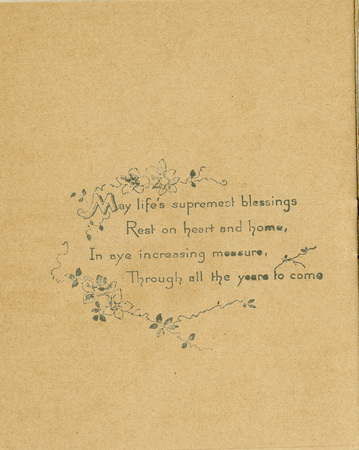 May life's supremest blessings
Rest on heart and home,
In aye increasing measure,
Through all the years to come